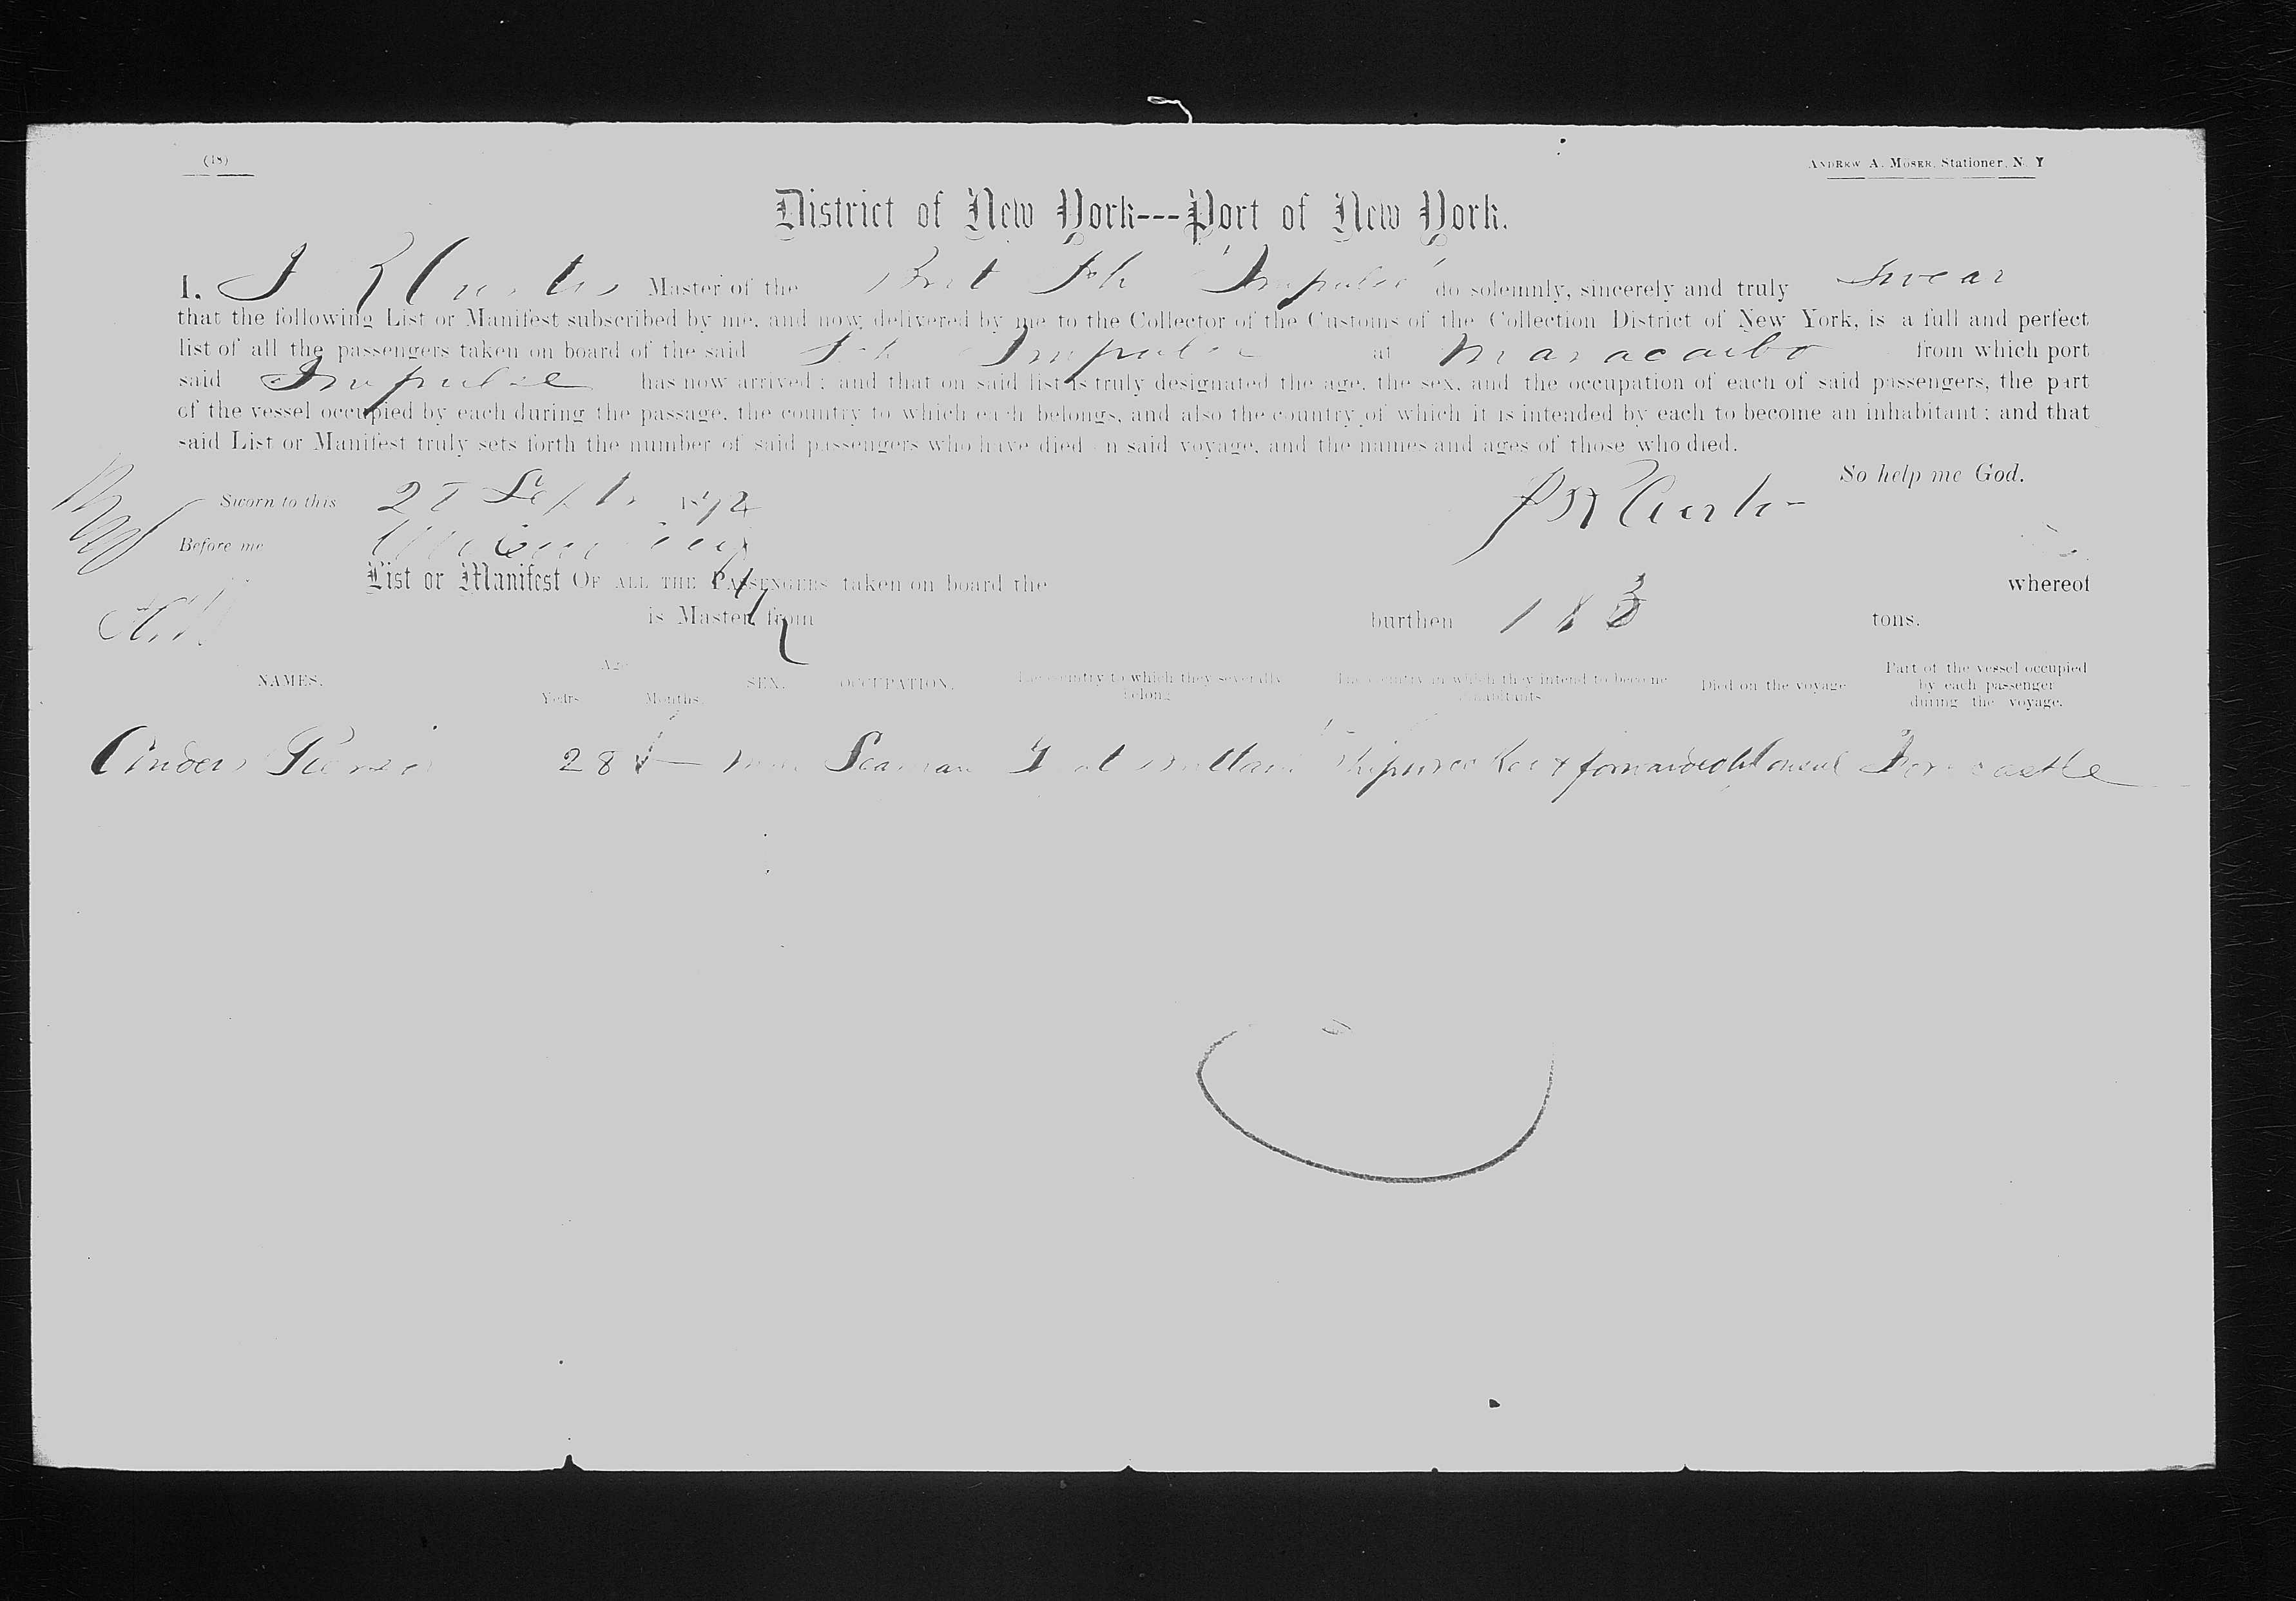 (48)
ANDREW A. MOSER, Stationer, N. Y
District of New York---Port of New York.
I, J R Curtis Master of the Brit Sch "Impulse" do solemnly, sincerely and truly swear
that the following List or Manifest subscribed by me, and now delivered by me to the Collector of the Customs of the Collection District of New York, is a full and perfect
list of all the passengers taken on board of the said Sch Impulse at Maracaibo from which port
said Impulse has now arrived; and that on said list is truly designated the age, the sex, and the occupation of each of said passengers, the part
of the vessel occupied by each during the passage, the country to which each belongs, and also the country of which it is intended by each to become an inhabitant; and that
said List or Manifest truly sets forth the number of said passengers who have died on said voyage, and the names and ages of those who died.
So help me God.
Sworn to this Sept 1872
J R Curtis
Before me
List or Manifest OF ALL THE PASSENGERS taken on board the whereof
is Master, from burthen 183 tons.
NAMES. Age Years Months. SEX. OCCUPATION. The country to which they severally belong The country in which they intend to become inhabitants Died on the voyage Part of the vessel occupied by each passenger during the voyage.
28 — Seaman Great Brittain Shipwrecked & forwarded by Consul Forecastle